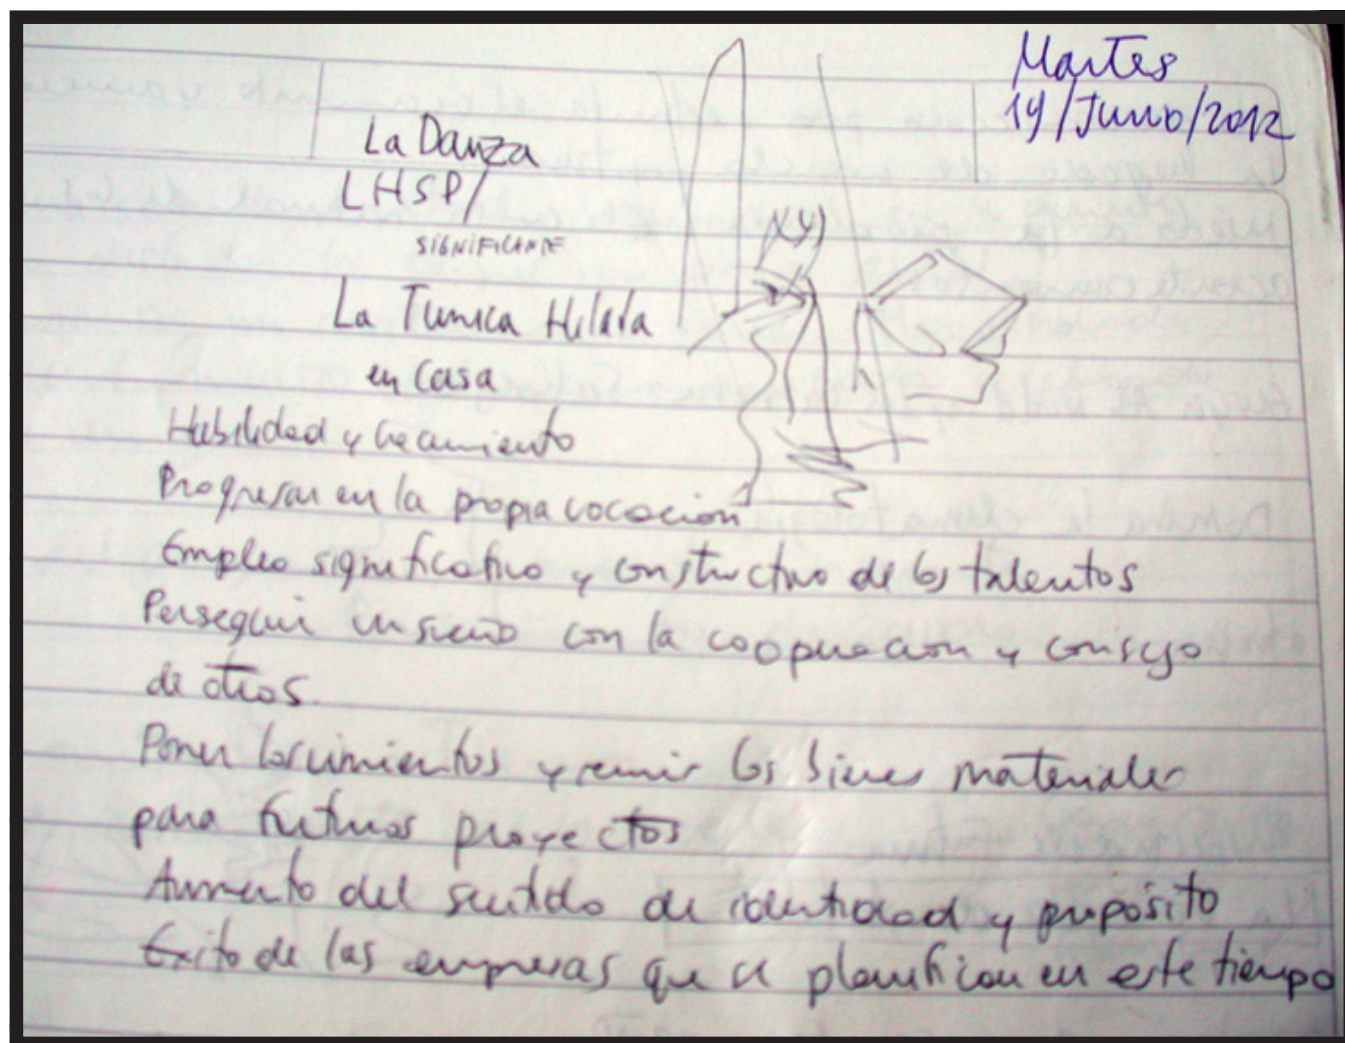 Martes
19/Junio/2012
La Danza
LHSP/
SIGNIFICANTE
La Tunica Hilada
en Casa
(xy)
Habilidad y crecimiento
Progresar en la propia vocación
Empleo significativo y constructivo de los talentos
Perseguir un sueño con la cooperacion y consejo
de otros.
Poner los cimientos y reunir los bienes materiales
para futuros proyectos
Aumento del sentido de identidad y propósito
Exito de las empresas que se planifican en este tiempo